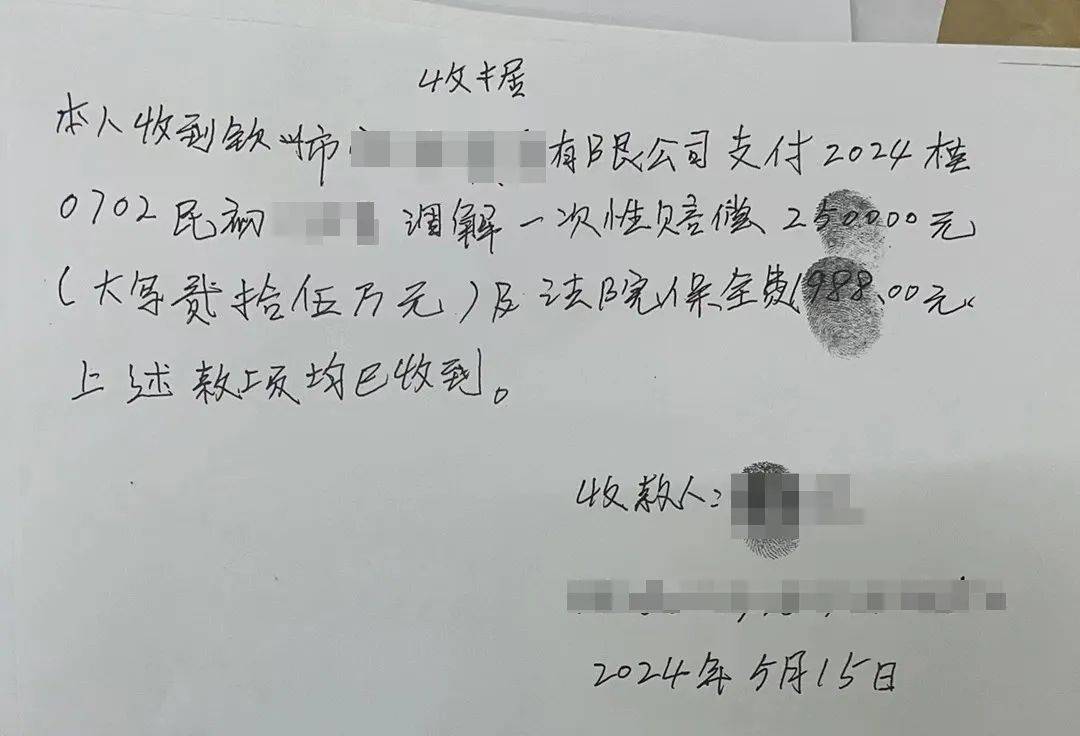 收据
本人收到钦州市 有限公司支付2024桂
0702民初 调解一次性赔偿250000元
(大写贰拾伍万元)及法院保全费1988.00元。
上述款项均已收到。
收款人:
2024年5月15日